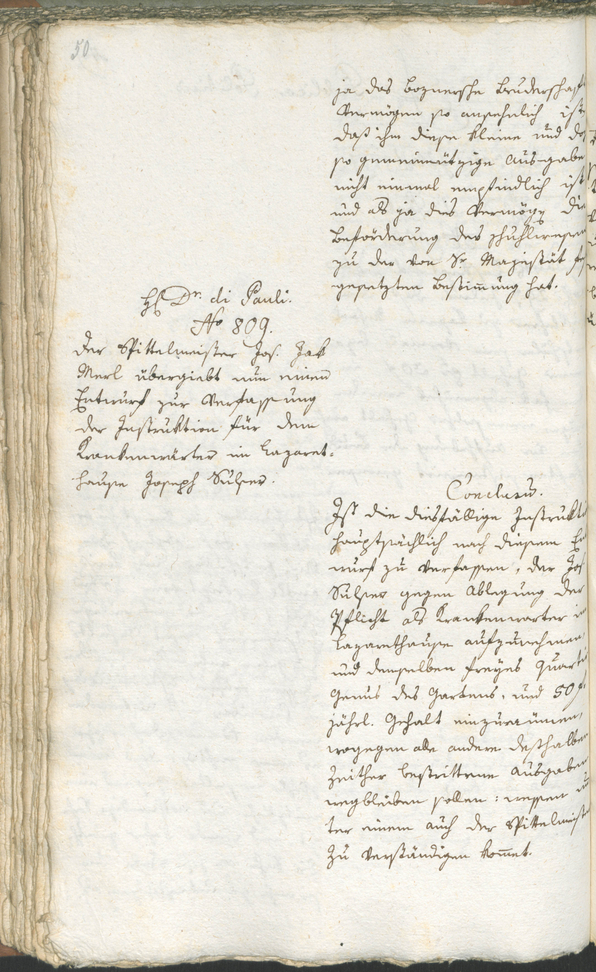 50
ja das boznersche Bruderschafts
Vermögen so ansehnlich ist
daß ihm diese kleine und do
so gemeinnützige Ausgabe
nicht einmal empfindlich ist
und als ja dies Vermögen die
Beförderung des Schuhlwesens
zu der von Sr. Majestät
gesetzten Bestimung hat.
H. Dr. di Pauli.
No 809.
Der Spittelmeister Jos. Jak
Merl übergiebt nun einen
Entwurf zur Verfassung
der Instruktion für den
Krankenwärter im Lazaret-
hause Joseph Sulser.
Conclusū.
Ist die diesfällige Instrukti
hauptsächlich nach diesem En
wurf zu verfassen, der Jos
Sulser gegen Ablegung der
Pflicht als Krankenwarter in
Lazarethause aufzunehmen
und demselben freyes Quarti
Genus des Gartens, und 50
jährl. Gehalt einzuraümen,
wogegen alle andere desthalben
zeither bestrittene Ausgaben
wegbleiben sollen: wessen un
ter einem auch der Spittelmeist
zu verständigen kom̄et.